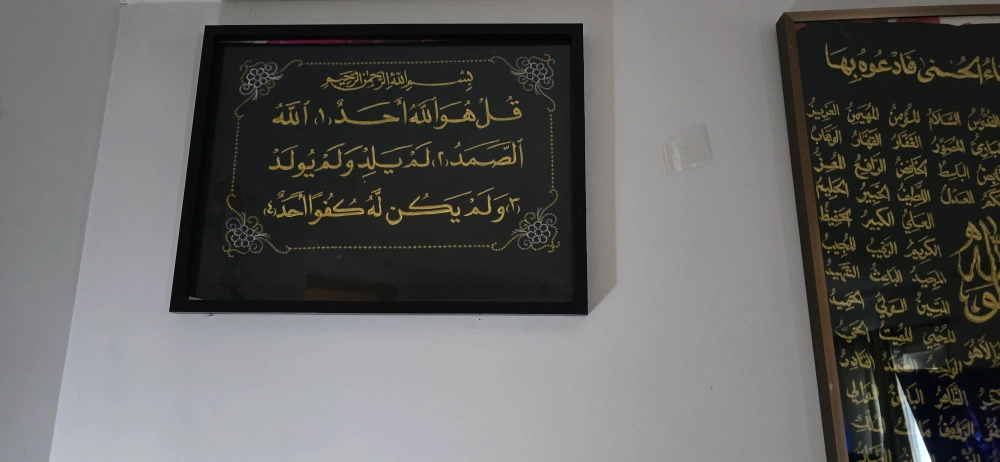 بِسْمِ اللهِ الرَّحْمٰنِ الرَّحِيْمِ
قُلْ هُوَ اللَّهُ أَحَدٌ (١) اَللَّهُ
الصَّمَدُ (٢) لَمْ يَلِدْ وَلَمْ يُولَدْ
(٣) وَلَمْ يَكُن لَّهُ كُفُوًا أَحَدٌ (٤)
الحُسْنى فَادْعُوهُ بِهَا
السَّلَامُ المُؤْمِنُ المُهَيْمِنُ العَزِيزُ
الغَفَّارُ القَهَّارُ الوَهَّابُ
البَاسِطُ الخَافِضُ الرَّافِعُ المُعِزُّ
العَدْلُ اللَّطِيفُ الخَبِيرُ الحَلِيمُ
العَلِيُّ الكَبِيرُ الحَفِيظُ
الكَرِيمُ الرَّقِيبُ المُجِيبُ
المَجِيدُ البَاعِثُ الشَّهِيدُ
المَتِينُ الوَلِيُّ الحَمِيدُ
المُحْيِي المُمِيتُ الحَيُّ
الوَاحِدُ الصَّمَدُ القَادِرُ
الظَّاهِرُ البَاطِنُ الوَالِي
الرَّؤُوفُ